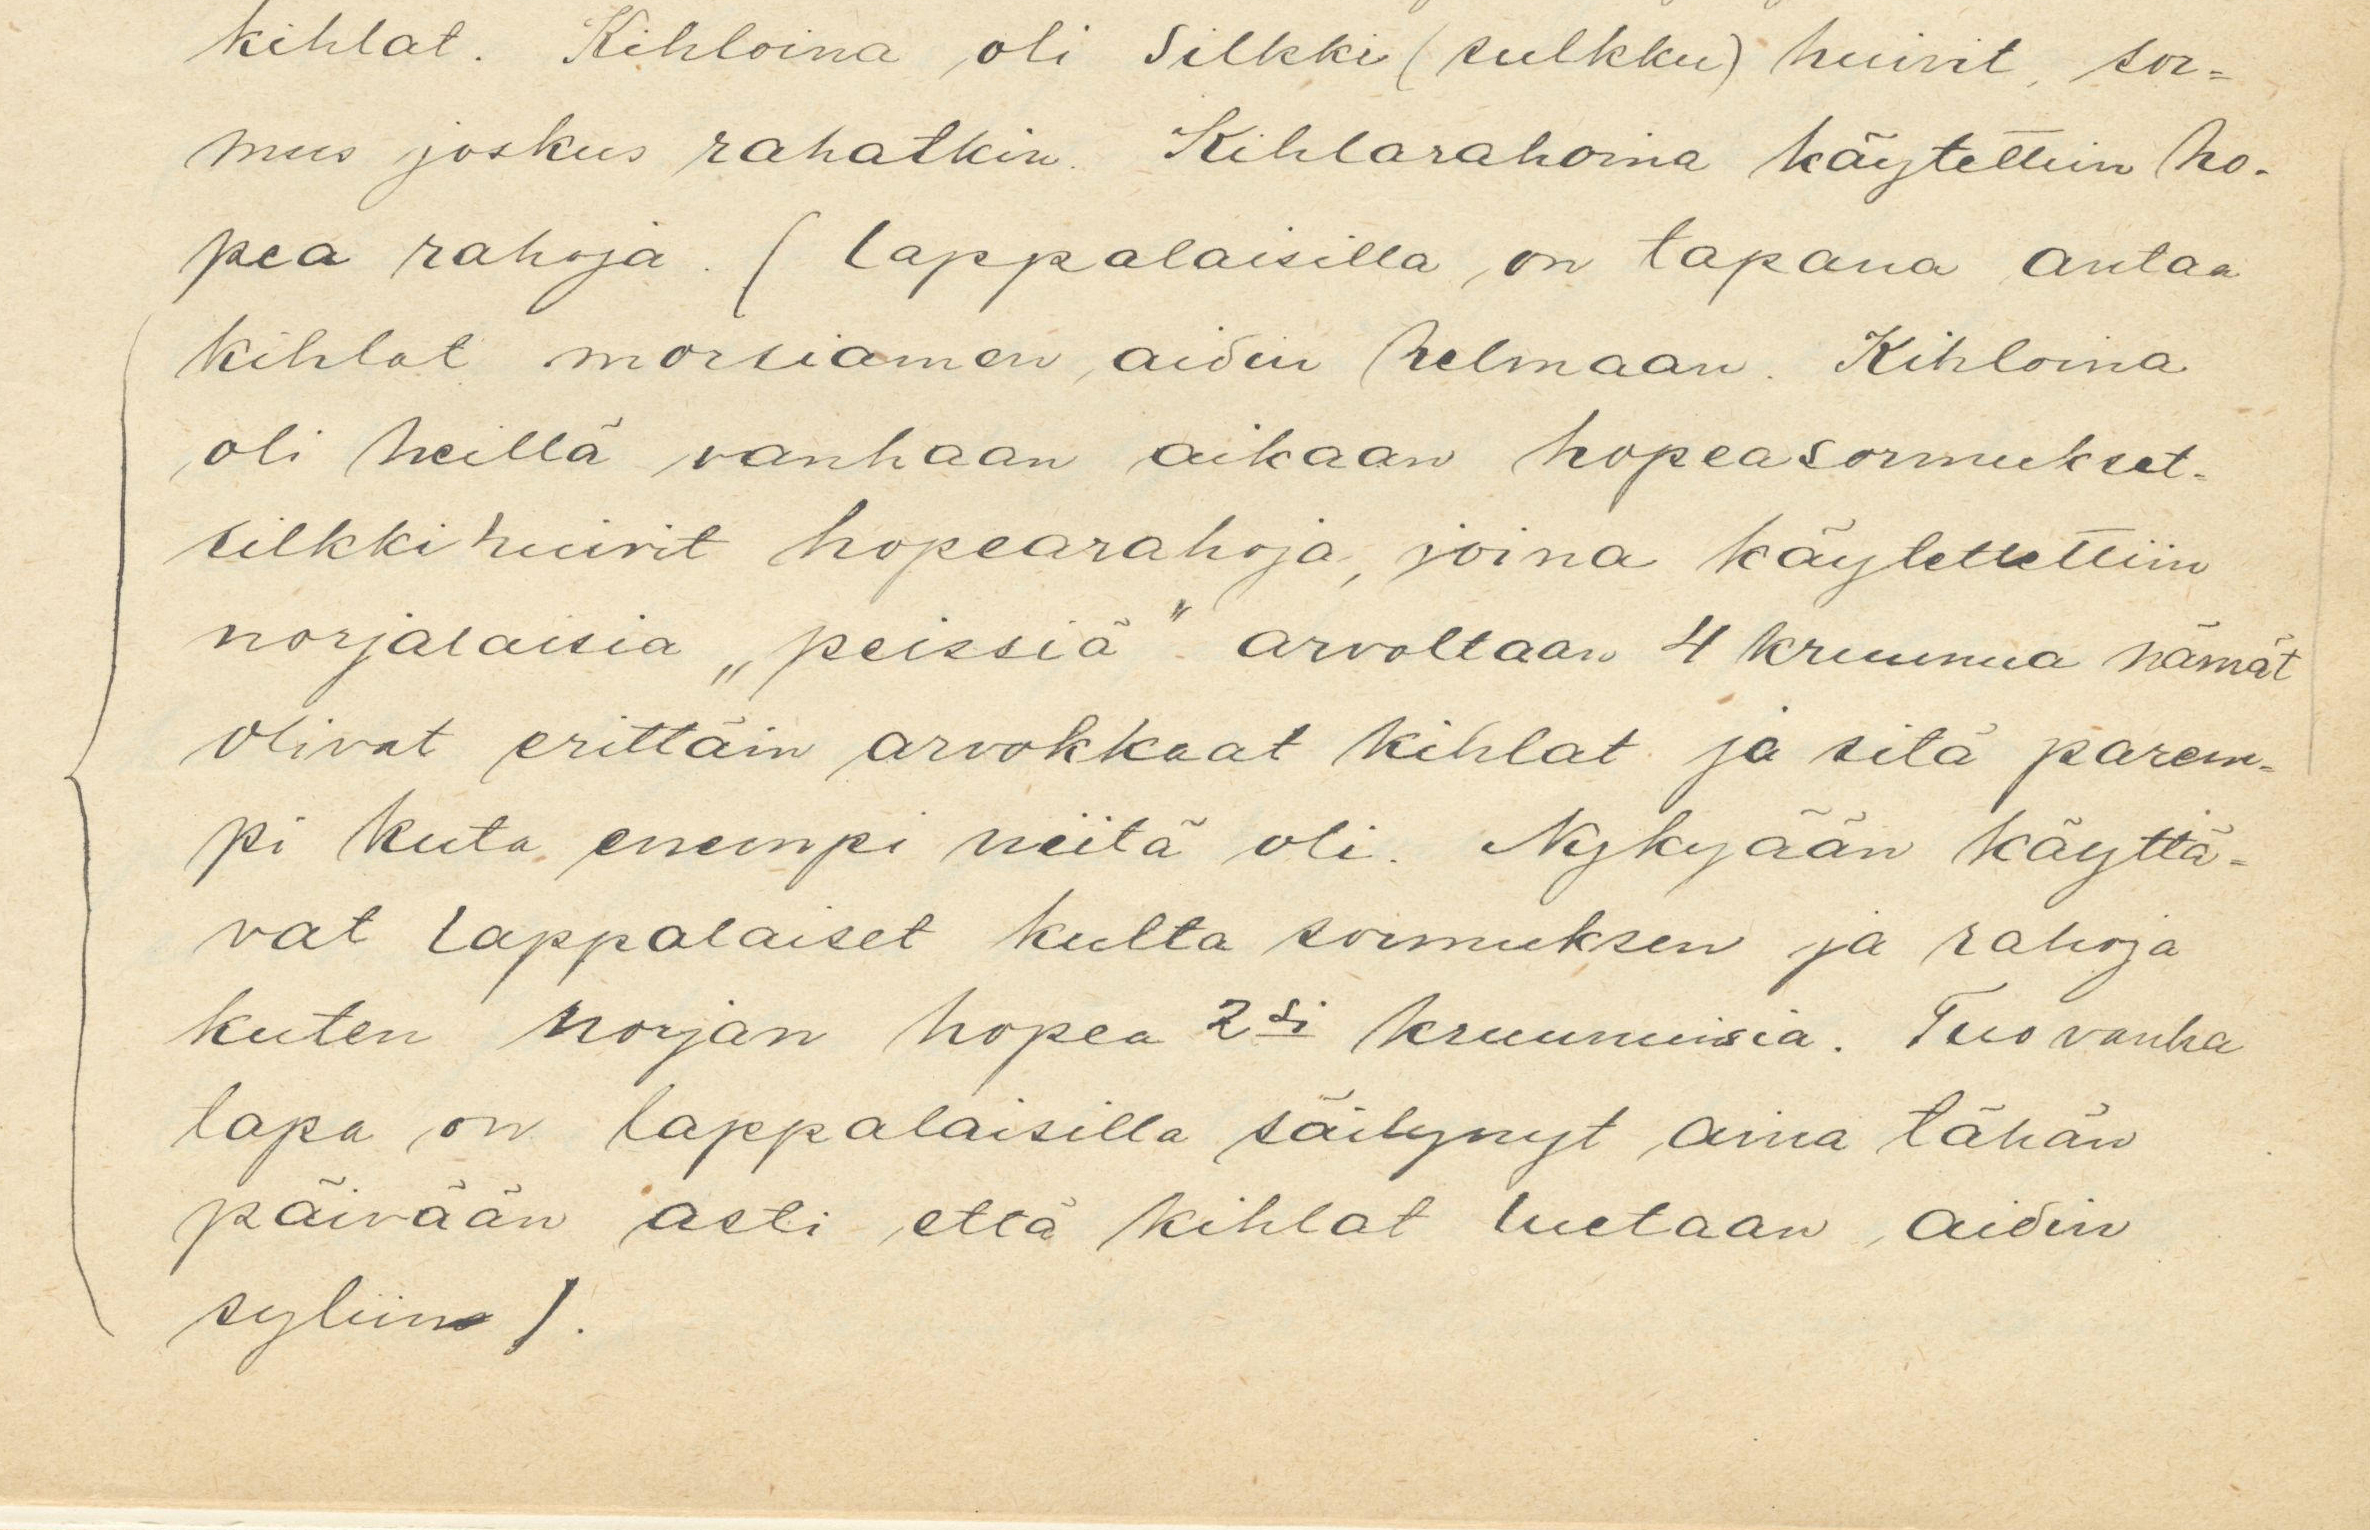 kihlat. Kihloina oli silkki (sulkku) huivit, sor=
mus joskus rahatkin. Kihlarahoina käytettiin ho-
pea rahoja. ( lappalaisilla on tapana antaa
kihlat morsiamen aidin helmaan. Kihloina
oli heillä vanhaan aikaan hopeasormukset-
silkkihuivit hopearahoja, joina käytettettiin
norjalaisia „peissiä" arvoltaan 4 kruunua nämät
olivat erittäin arvokkaat kihlat ja sitä parem-
pi kuta enempi niitä oli. Nykyään käyttä-
vat lappalaiset kulta sormuksen ja rahoja
kuten norjan hopea 2si kruunuisia. Tuo vanha
tapa on lappalaisilla säilynyt aina tähän
päivään asti että kihlat luetaan aidin
syliin ).